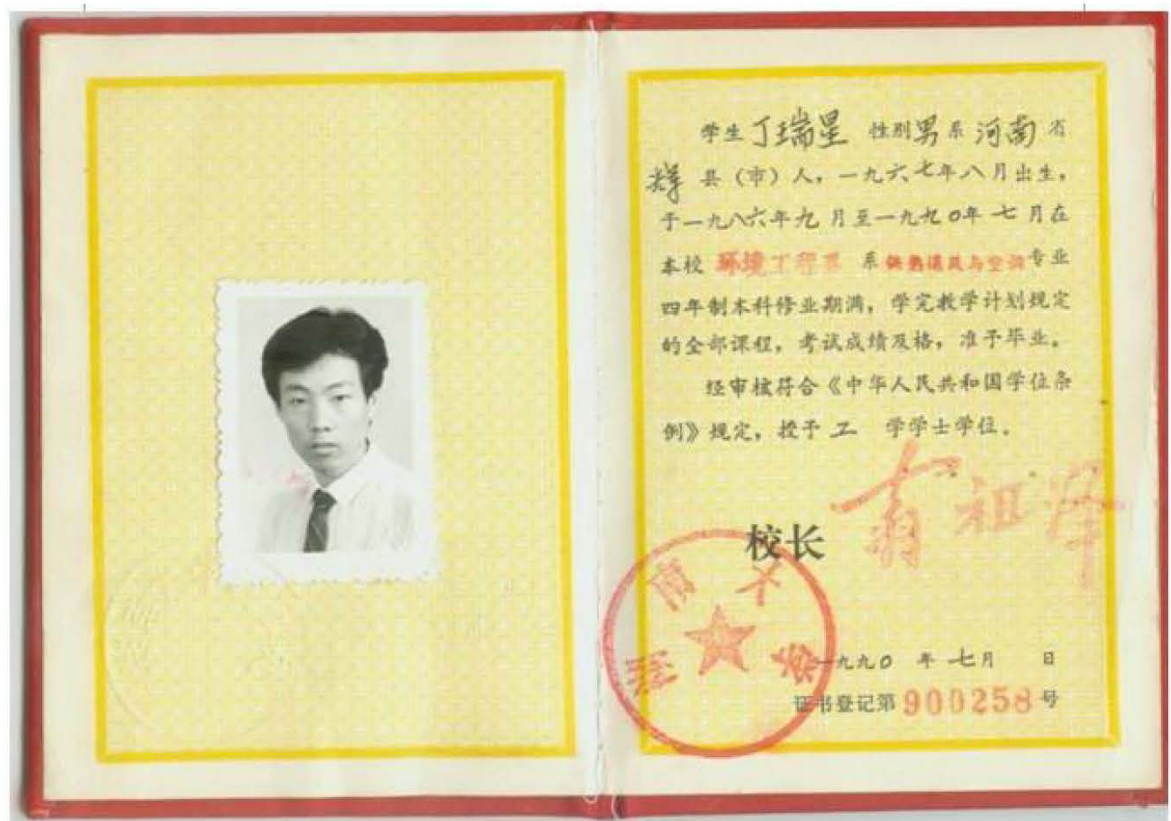 学生丁瑞星 性别男系河南省
辉县(市)人,一九六七年八月出生,
于一九八六年九月至一九九0年七月在
本校 环境工程系 系供热通风与空调专业
四年制本科修业期满,学完教学计划规定
的全部课程,考试成绩及格,准予毕业。
经审核符合《中华人民共和国学位条
例》规定,授予工 学学士学位。
校长 翁祖泽
湖南大学
一九九0年七月 日
证书登记第900258号